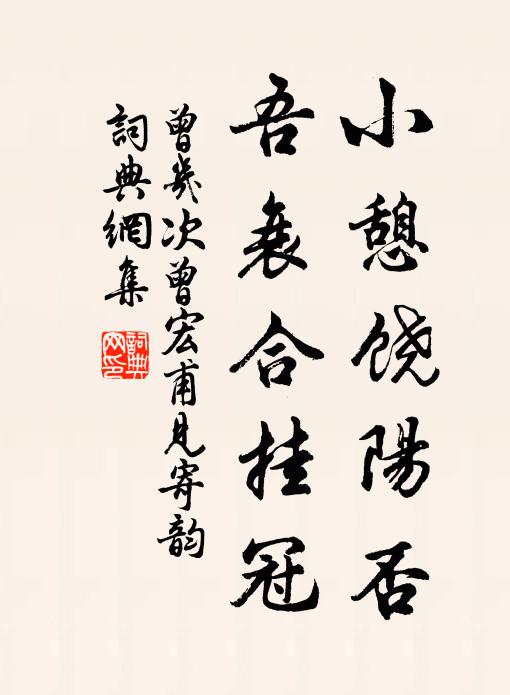 小憩饶陽否
吾衰合挂冠
曾幾次曾宏甫見寄韵
詞典網集
詞典网印